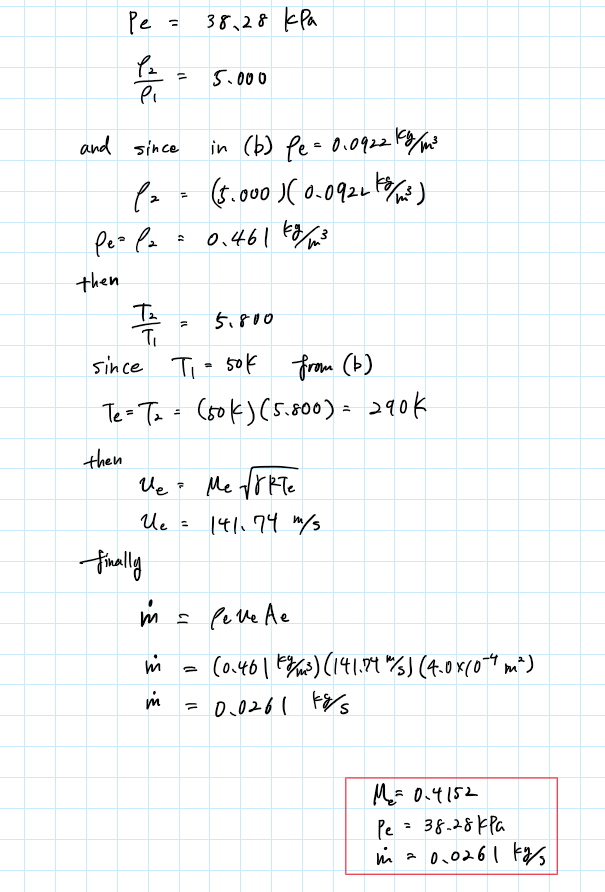 Pe = 38.28 kPa
ρ₂/ρ₁ = 5.000
and since in (b) ρe = 0.0922 kg/m³
ρ₂ = (5.000)(0.0922 kg/m³)
ρe = ρ₂ = 0.461 kg/m³
then
T₂/T₁ = 5.800
since T₁ = 50K from (b)
Te = T₂ = (50K)(5.800) = 290K
then
ue = Me √γRTe
ue = 141.74 m/s
finally
ṁ = ρe ue Ae
ṁ = (0.461 kg/m³)(141.74 m/s)(4.0×10⁻⁴ m²)
ṁ = 0.0261 kg/s
Me = 0.4152
Pe = 38.28 kPa
ṁ = 0.0261 kg/s